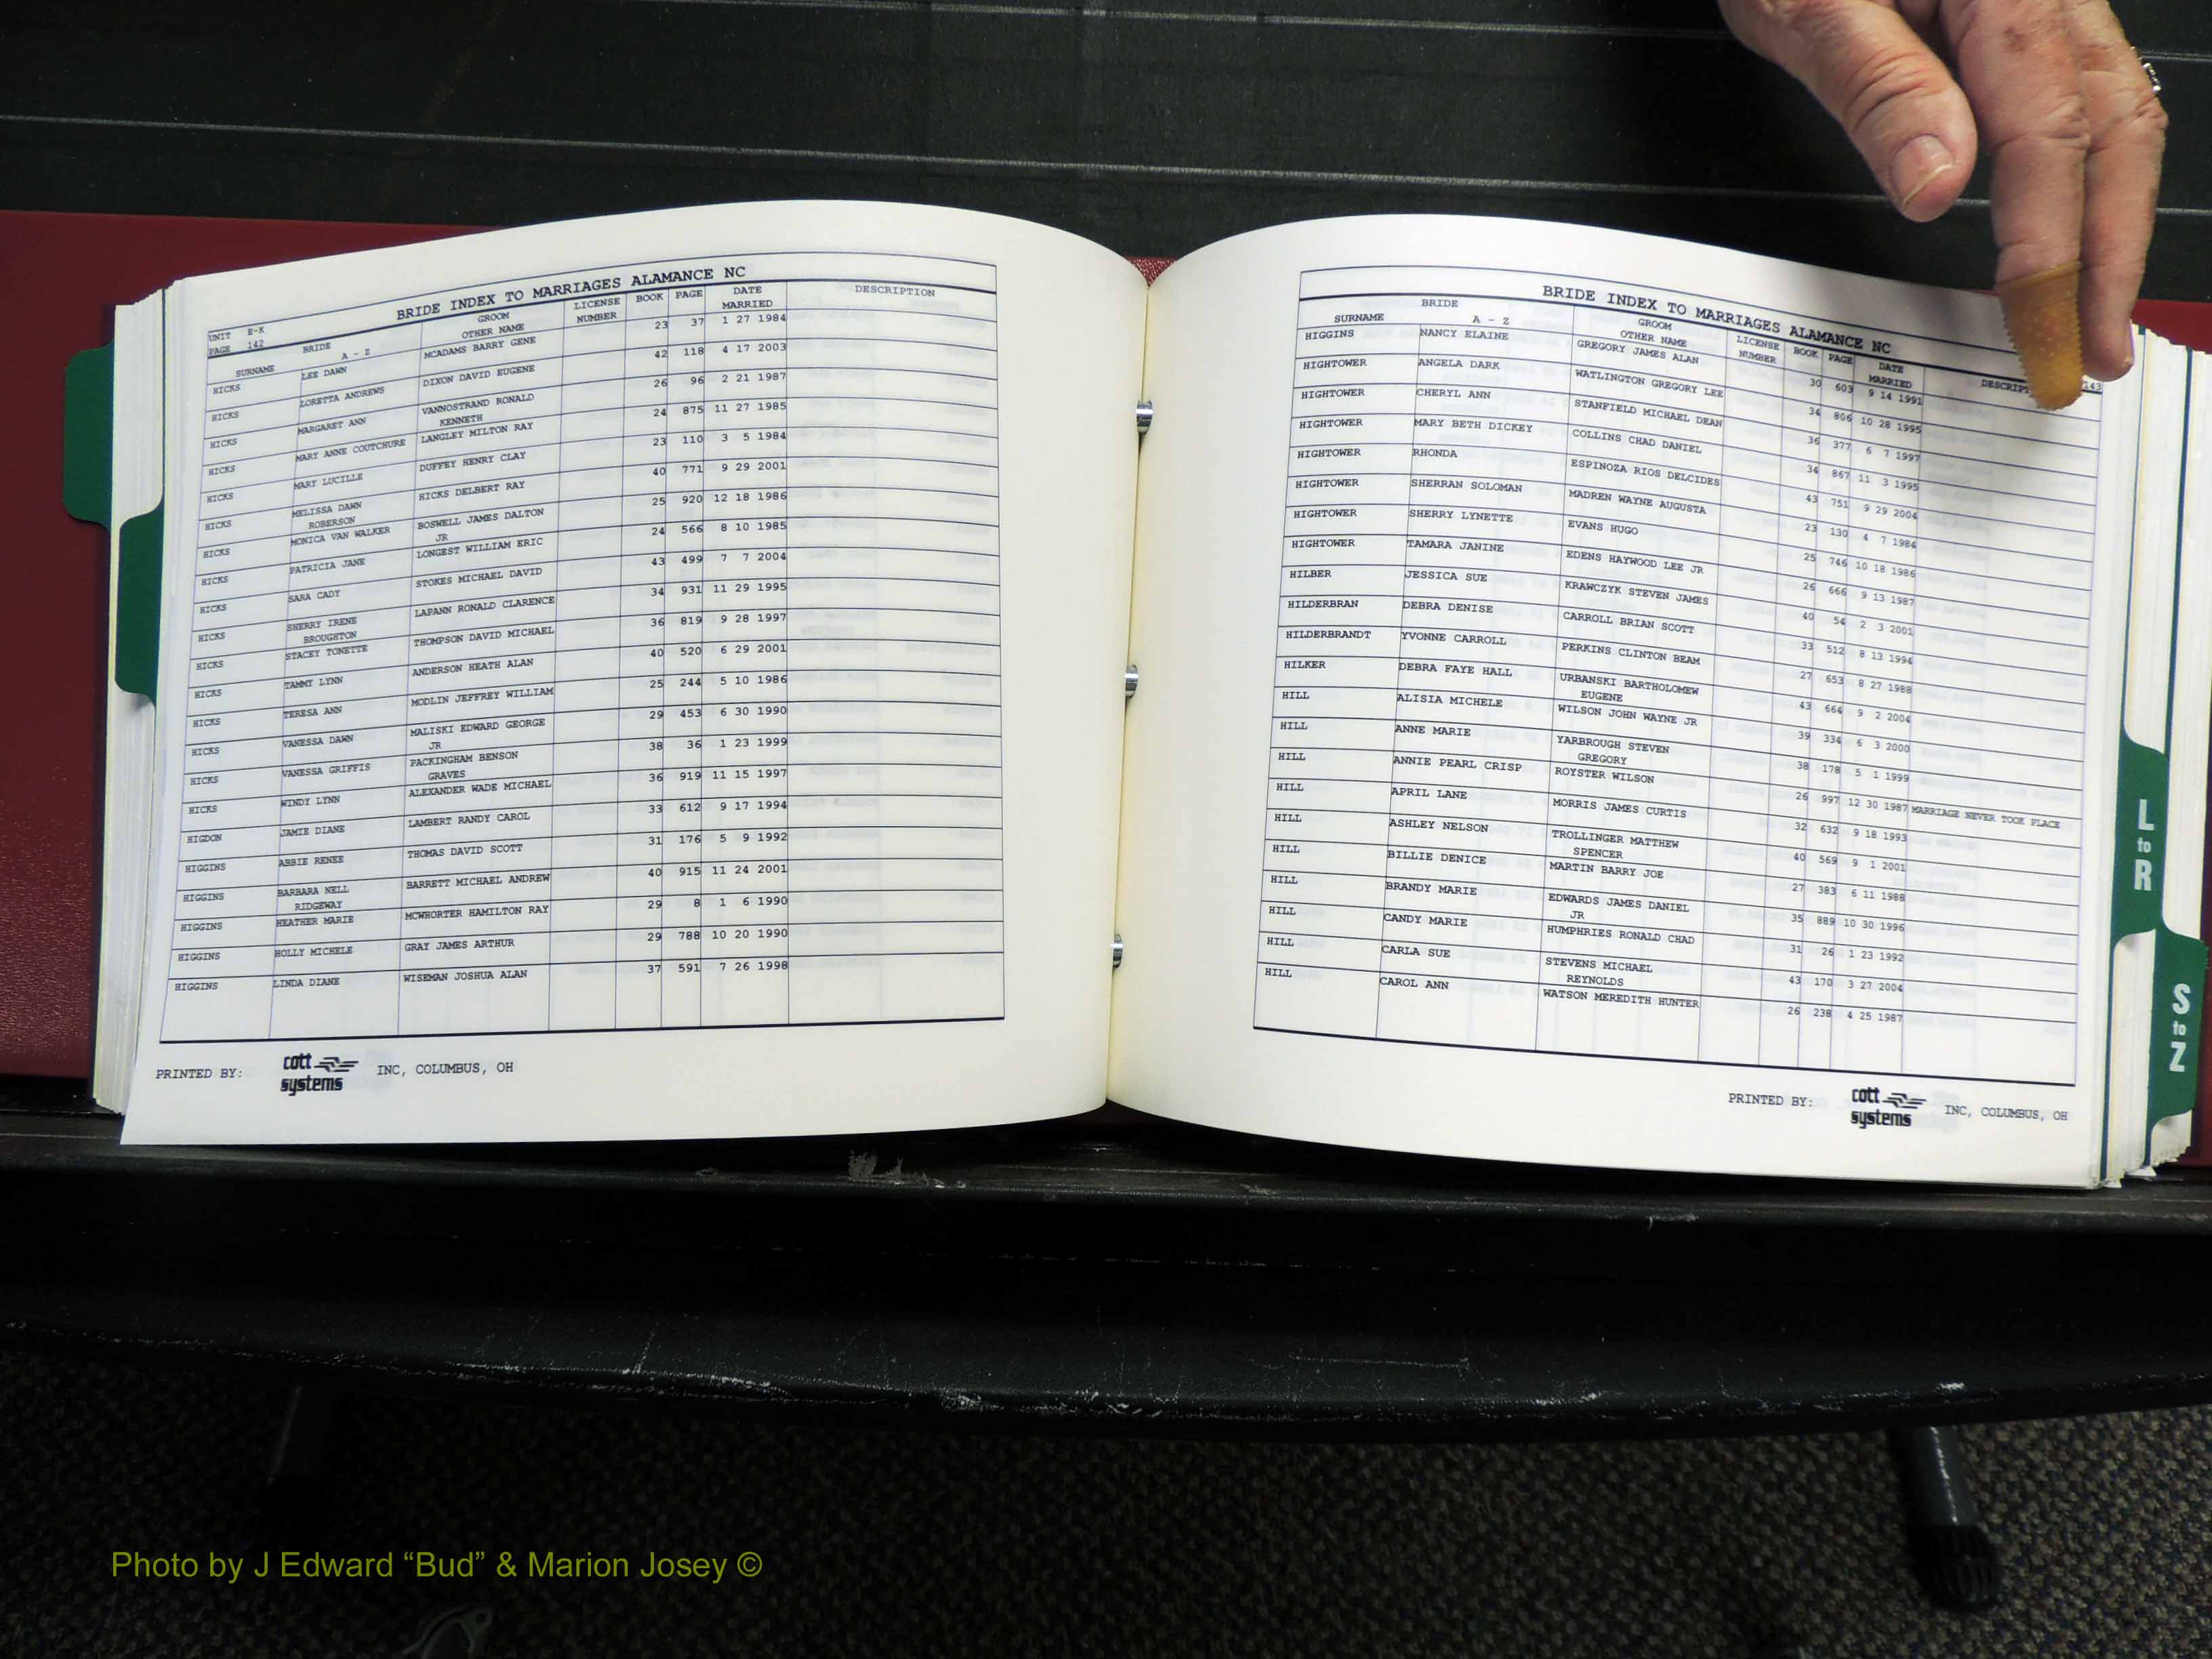 UNIT E-K
PAGE 142
BRIDE INDEX TO MARRIAGES ALAMANCE NC
SURNAME BRIDE A - Z GROOM OTHER NAME LICENSE NUMBER BOOK PAGE DATE MARRIED DESCRIPTION
HICKS LEE DAWN MCADAMS BARRY GENE 23 37 1 27 1984
HICKS LORETTA ANDREWS DIXON DAVID EUGENE 42 118 4 17 2003
HICKS MARGARET ANN VANNOSTRAND RONALD KENNETH 26 96 2 21 1987
HICKS MARY ANNE COUTCHURE LANGLEY MILTON RAY 24 875 11 27 1985
HICKS MARY LUCILLE DUFFEY HENRY CLAY 23 110 3 5 1984
HICKS MELISSA DAWN ROBERSON HICKS DELBERT RAY 40 771 9 29 2001
HICKS MONICA VAN WALKER BOSWELL JAMES DALTON JR 25 920 12 18 1986
HICKS PATRICIA JANE LONGEST WILLIAM ERIC 24 566 8 10 1985
HICKS SARA CADY STOKES MICHAEL DAVID 43 499 7 7 2004
HICKS SHERRY IRENE BROUGHTON LAPANN RONALD CLARENCE 34 931 11 29 1995
HICKS STACEY TONETTE THOMPSON DAVID MICHAEL 36 819 9 28 1997
HICKS TAMMY LYNN ANDERSON HEATH ALAN 40 520 6 29 2001
HICKS TERESA ANN MODLIN JEFFREY WILLIAM 25 244 5 10 1986
HICKS VANESSA DAWN MALISKI EDWARD GEORGE JR 29 453 6 30 1990
HICKS VANESSA GRIFFIS PACKINGHAM BENSON GRAVES 38 36 1 23 1999
HICKS WINDY LYNN ALEXANDER WADE MICHAEL 36 919 11 15 1997
HIGDON JAMIE DIANE LAMBERT RANDY CAROL 33 612 9 17 1994
HIGGINS ABBIE RENEE THOMAS DAVID SCOTT 31 176 5 9 1992
HIGGINS BARBARA NELL RIDGEWAY BARRETT MICHAEL ANDREW 40 915 11 24 2001
HIGGINS HEATHER MARIE MCWHORTER HAMILTON RAY 29 8 1 6 1990
HIGGINS HOLLY MICHELE GRAY JAMES ARTHUR 29 788 10 20 1990
HIGGINS LINDA DIANE WISEMAN JOSHUA ALAN 37 591 7 26 1998
PRINTED BY: cott systems INC, COLUMBUS, OH
BRIDE INDEX TO MARRIAGES ALAMANCE NC
143
SURNAME BRIDE A - Z GROOM OTHER NAME LICENSE NUMBER BOOK PAGE DATE MARRIED
HIGGINS NANCY ELAINE GREGORY JAMES ALAN 30 603 9 14 1991
HIGHTOWER ANGELA DARK WATLINGTON GREGORY LEE 34 806 10 28 1995
HIGHTOWER CHERYL ANN STANFIELD MICHAEL DEAN 36 377 6 7 1997
HIGHTOWER MARY BETH DICKEY COLLINS CHAD DANIEL 34 867 11 3 1995
HIGHTOWER RHONDA ESPINOZA RIOS DELCIDES 43 751 9 29 2004
HIGHTOWER SHERRAN SOLOMAN MADREN WAYNE AUGUSTA 23 130 4 7 1984
HIGHTOWER SHERRY LYNETTE EVANS HUGO 25 746 10 18 1986
HIGHTOWER TAMARA JANINE EDENS HAYWOOD LEE JR 26 666 9 13 1987
HILBER JESSICA SUE KRAWCZYK STEVEN JAMES 40 54 2 3 2001
HILDERBRAN DEBRA DENISE CARROLL BRIAN SCOTT 33 512 8 13 1994
HILDERBRANDT YVONNE CARROLL PERKINS CLINTON BEAM 27 653 8 27 1988
HILKER DEBRA FAYE HALL URBANSKI BARTHOLOMEW EUGENE 43 664 9 2 2004
HILL ALISIA MICHELE WILSON JOHN WAYNE JR 39 334 6 3 2000
HILL ANNE MARIE YARBROUGH STEVEN GREGORY 38 178 5 1 1999
HILL ANNIE PEARL CRISP ROYSTER WILSON 26 997 12 30 1987 MARRIAGE NEVER TOOK PLACE
HILL APRIL LANE MORRIS JAMES CURTIS 32 632 9 18 1993
HILL ASHLEY NELSON TROLLINGER MATTHEW SPENCER 40 569 9 1 2001
HILL BILLIE DENICE MARTIN BARRY JOE 27 383 6 11 1988
HILL BRANDY MARIE EDWARDS JAMES DANIEL JR 35 889 10 30 1996
HILL CANDY MARIE HUMPHRIES RONALD CHAD 31 26 1 23 1992
HILL CARLA SUE STEVENS MICHAEL REYNOLDS 43 170 3 27 2004
HILL CAROL ANN WATSON MEREDITH HUNTER 26 238 4 25 1987
PRINTED BY: cott systems INC, COLUMBUS, OH
L to R
S to Z
Photo by J Edward “Bud” & Marion Josey ©